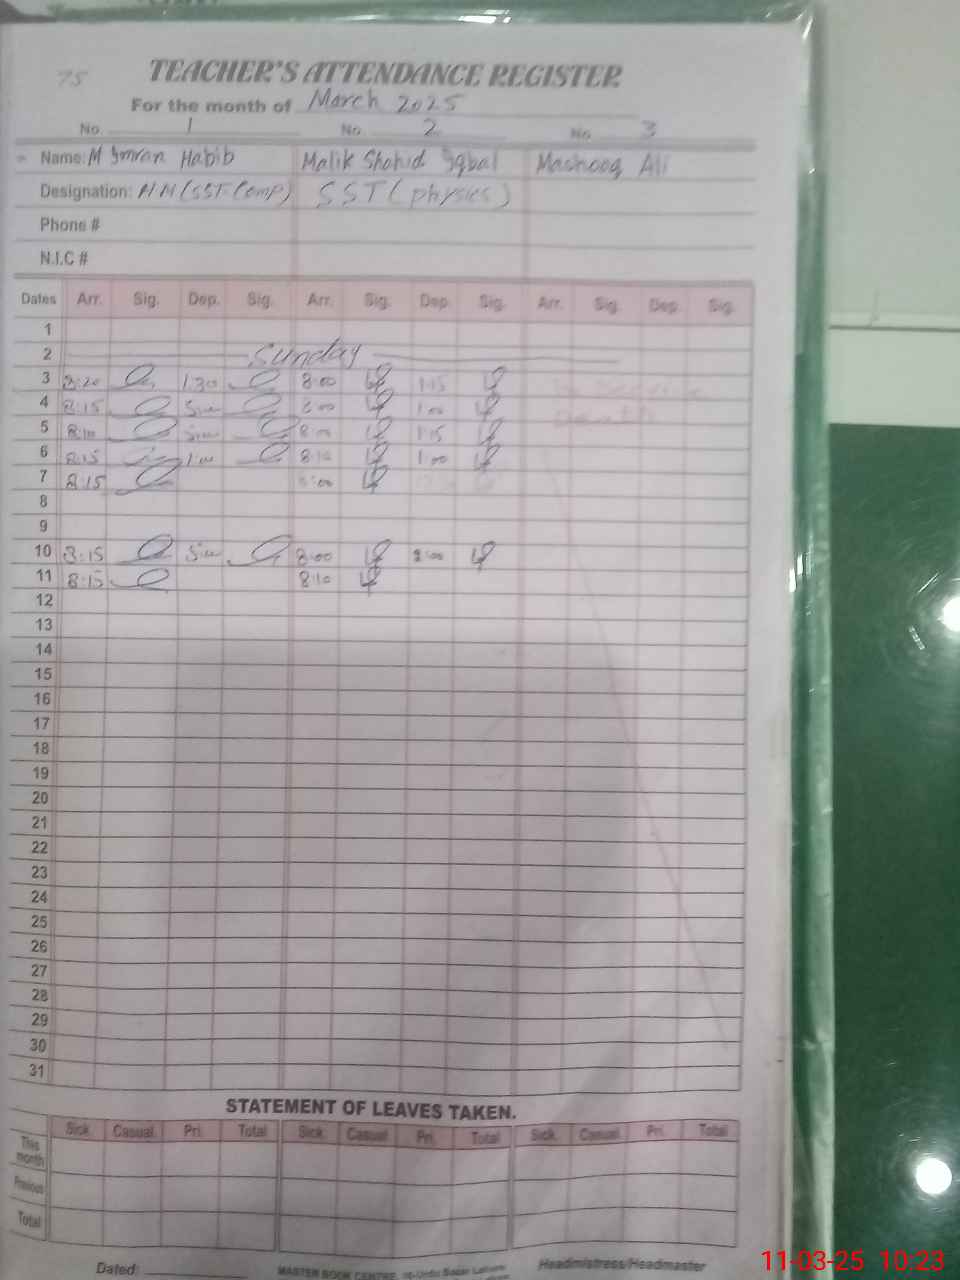 75
TEACHER'S ATTENDANCE REGISTER
For the month of March 2025
No 1 No. 2 No. 3
Name: M Imran Habib Malik Shahid Iqbal Mashooq Ali
Designation: HM (SST-Comp) SST (physics)
Phone #
N.I.C #
Dates Arr. Sig. Dep. Sig. Arr. Sig. Dep. Sig. Arr. Sig. Dep. Sig.
1
2 Sunday
3 8:20 1:30 8:00 1:15
4 8:15 8:00 1:00
5 8:10 8:00 1:15
6 8:15 1:00 8:10 1:00
7 8:15 8:00
8
9
10 8:15 8:00 2:00
11 8:15 8:10
12
13
14
15
16
17
18
19
20
21
22
23
24
25
26
27
28
29
30
31
STATEMENT OF LEAVES TAKEN.
Sick Casual Pri. Total Sick Casual Pri. Total Sick. Casual Pri. Total
This month
Previous
Total
Dated: MASTER BOOK CENTRE, Urdu Bazar Lahore Headmistress/Headmaster
11-03-25 10:23